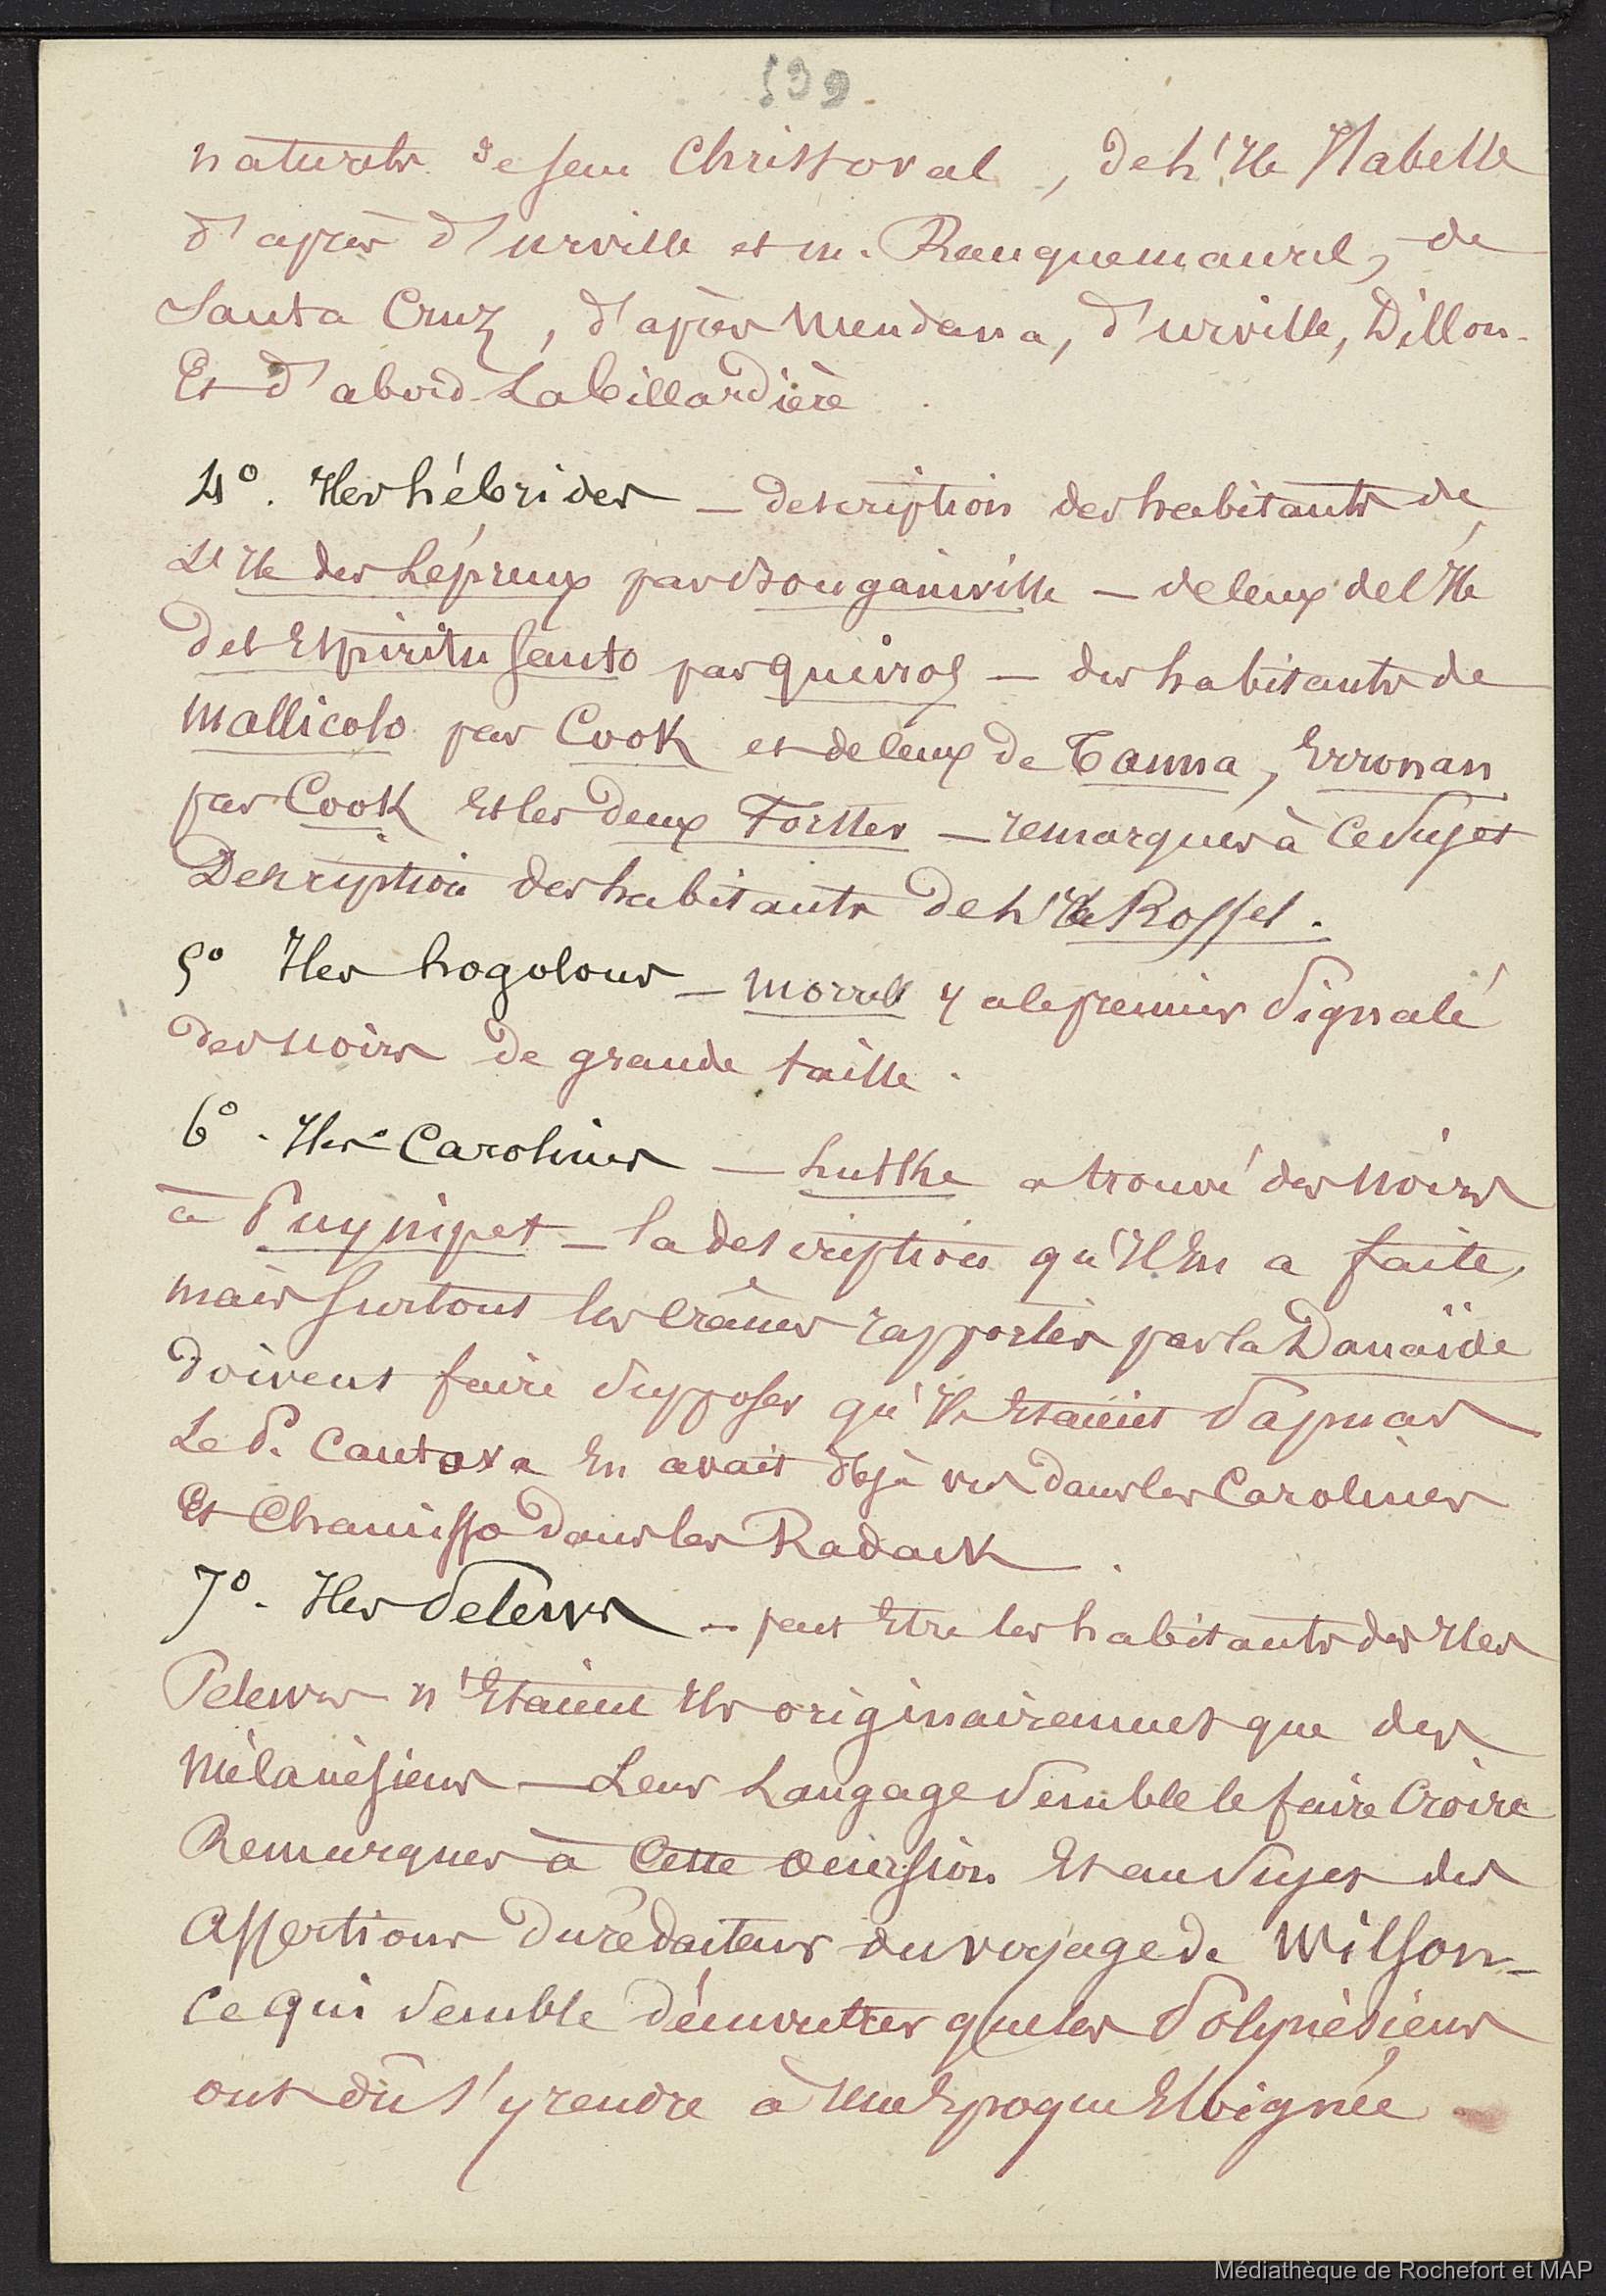 539
naturels de San Christoval, de l'Ile Isabelle
d'après d'urville et m. Rauquemaurel, de
Santa Cruz, d'après Mendana, d'urville, Dillon.
Et d'abord Labillardière
4°. Iles hébrides — description des habitants de
L'Ile des Lépreux par Bougainville — de ceux de l'Ile
del Espiritu Santo par Queiros — des habitants de
Mallicolo par Cook et de ceux de Tanna, Erronan
par Cook et les deux Forster — remarques à ce sujet
Description des habitants de l'Ile Rossel.
5° Iles hogolous — Morrell y a le premier signalé
des noirs de grande taille.
6°. Iles Carolines — Lutke a trouvé des noirs
à Puynipet — la description qu'il en a faite,
mais surtout les crânes rapportés par la Danaïde
doivent faire supposer qu'ils étaient Papuas
Le P. Cantova en avait déjà vu dans les Carolines
Et Chamisso dans les Radack.
7°. Iles Pelews — peut être les habitants des Iles
Pelews n'étaient ils originairement que des
Mélanésiens — Leur langage semble le faire croire
Remarques à cette occasion et au sujet des
assertions du rédacteur du voyage de Wilson —
ce qui semble démontrer que les Polynésiens
ont dû s'y rendre à une Epoque Eloignée
Médiathèque de Rochefort et MAP